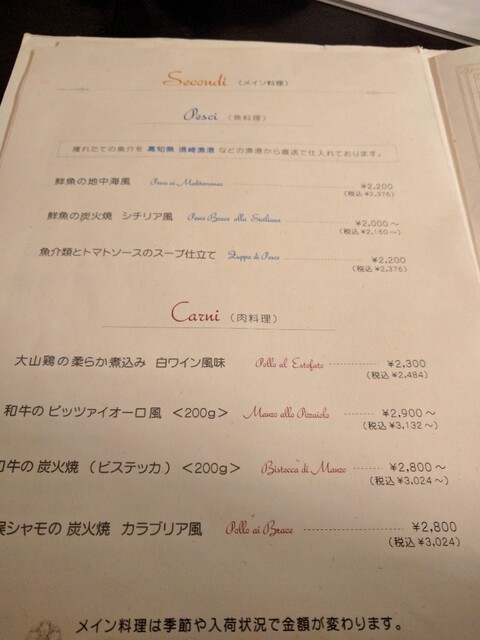 Secondi (メイン料理)
Pesci (魚料理)
獲れたての魚介を 高知県 須崎漁港 などの漁港から直送で仕入れております。
鮮魚の地中海風 Pesce ai Mediterranea ¥2,200
(税込 ¥2,376)
鮮魚の炭火焼 シチリア風 Pesce Brace alla Siciliana ¥2,000～
(税込 ¥2,160～)
魚介類とトマトソースのスープ仕立て Zuppa di Pesce ¥2,200
(税込 ¥2,376)
Carni (肉料理)
大山鶏の柔らか煮込み 白ワイン風味 Pollo al Estofato ¥2,300
(税込 ¥2,484)
和牛の ピッツァイオーロ風 <200g> Manzo allo Pizzaiolo ¥2,900～
(税込 ¥3,132～)
牛の 炭火焼 (ビステッカ) <200g> Bistecca di Manzo ¥2,800～
(税込 ¥3,024～)
シャモの 炭火焼 カラブリア風 Pollo ai Brace ¥2,800
(税込 ¥3,024)
メイン料理は季節や入荷状況で金額が変わります。